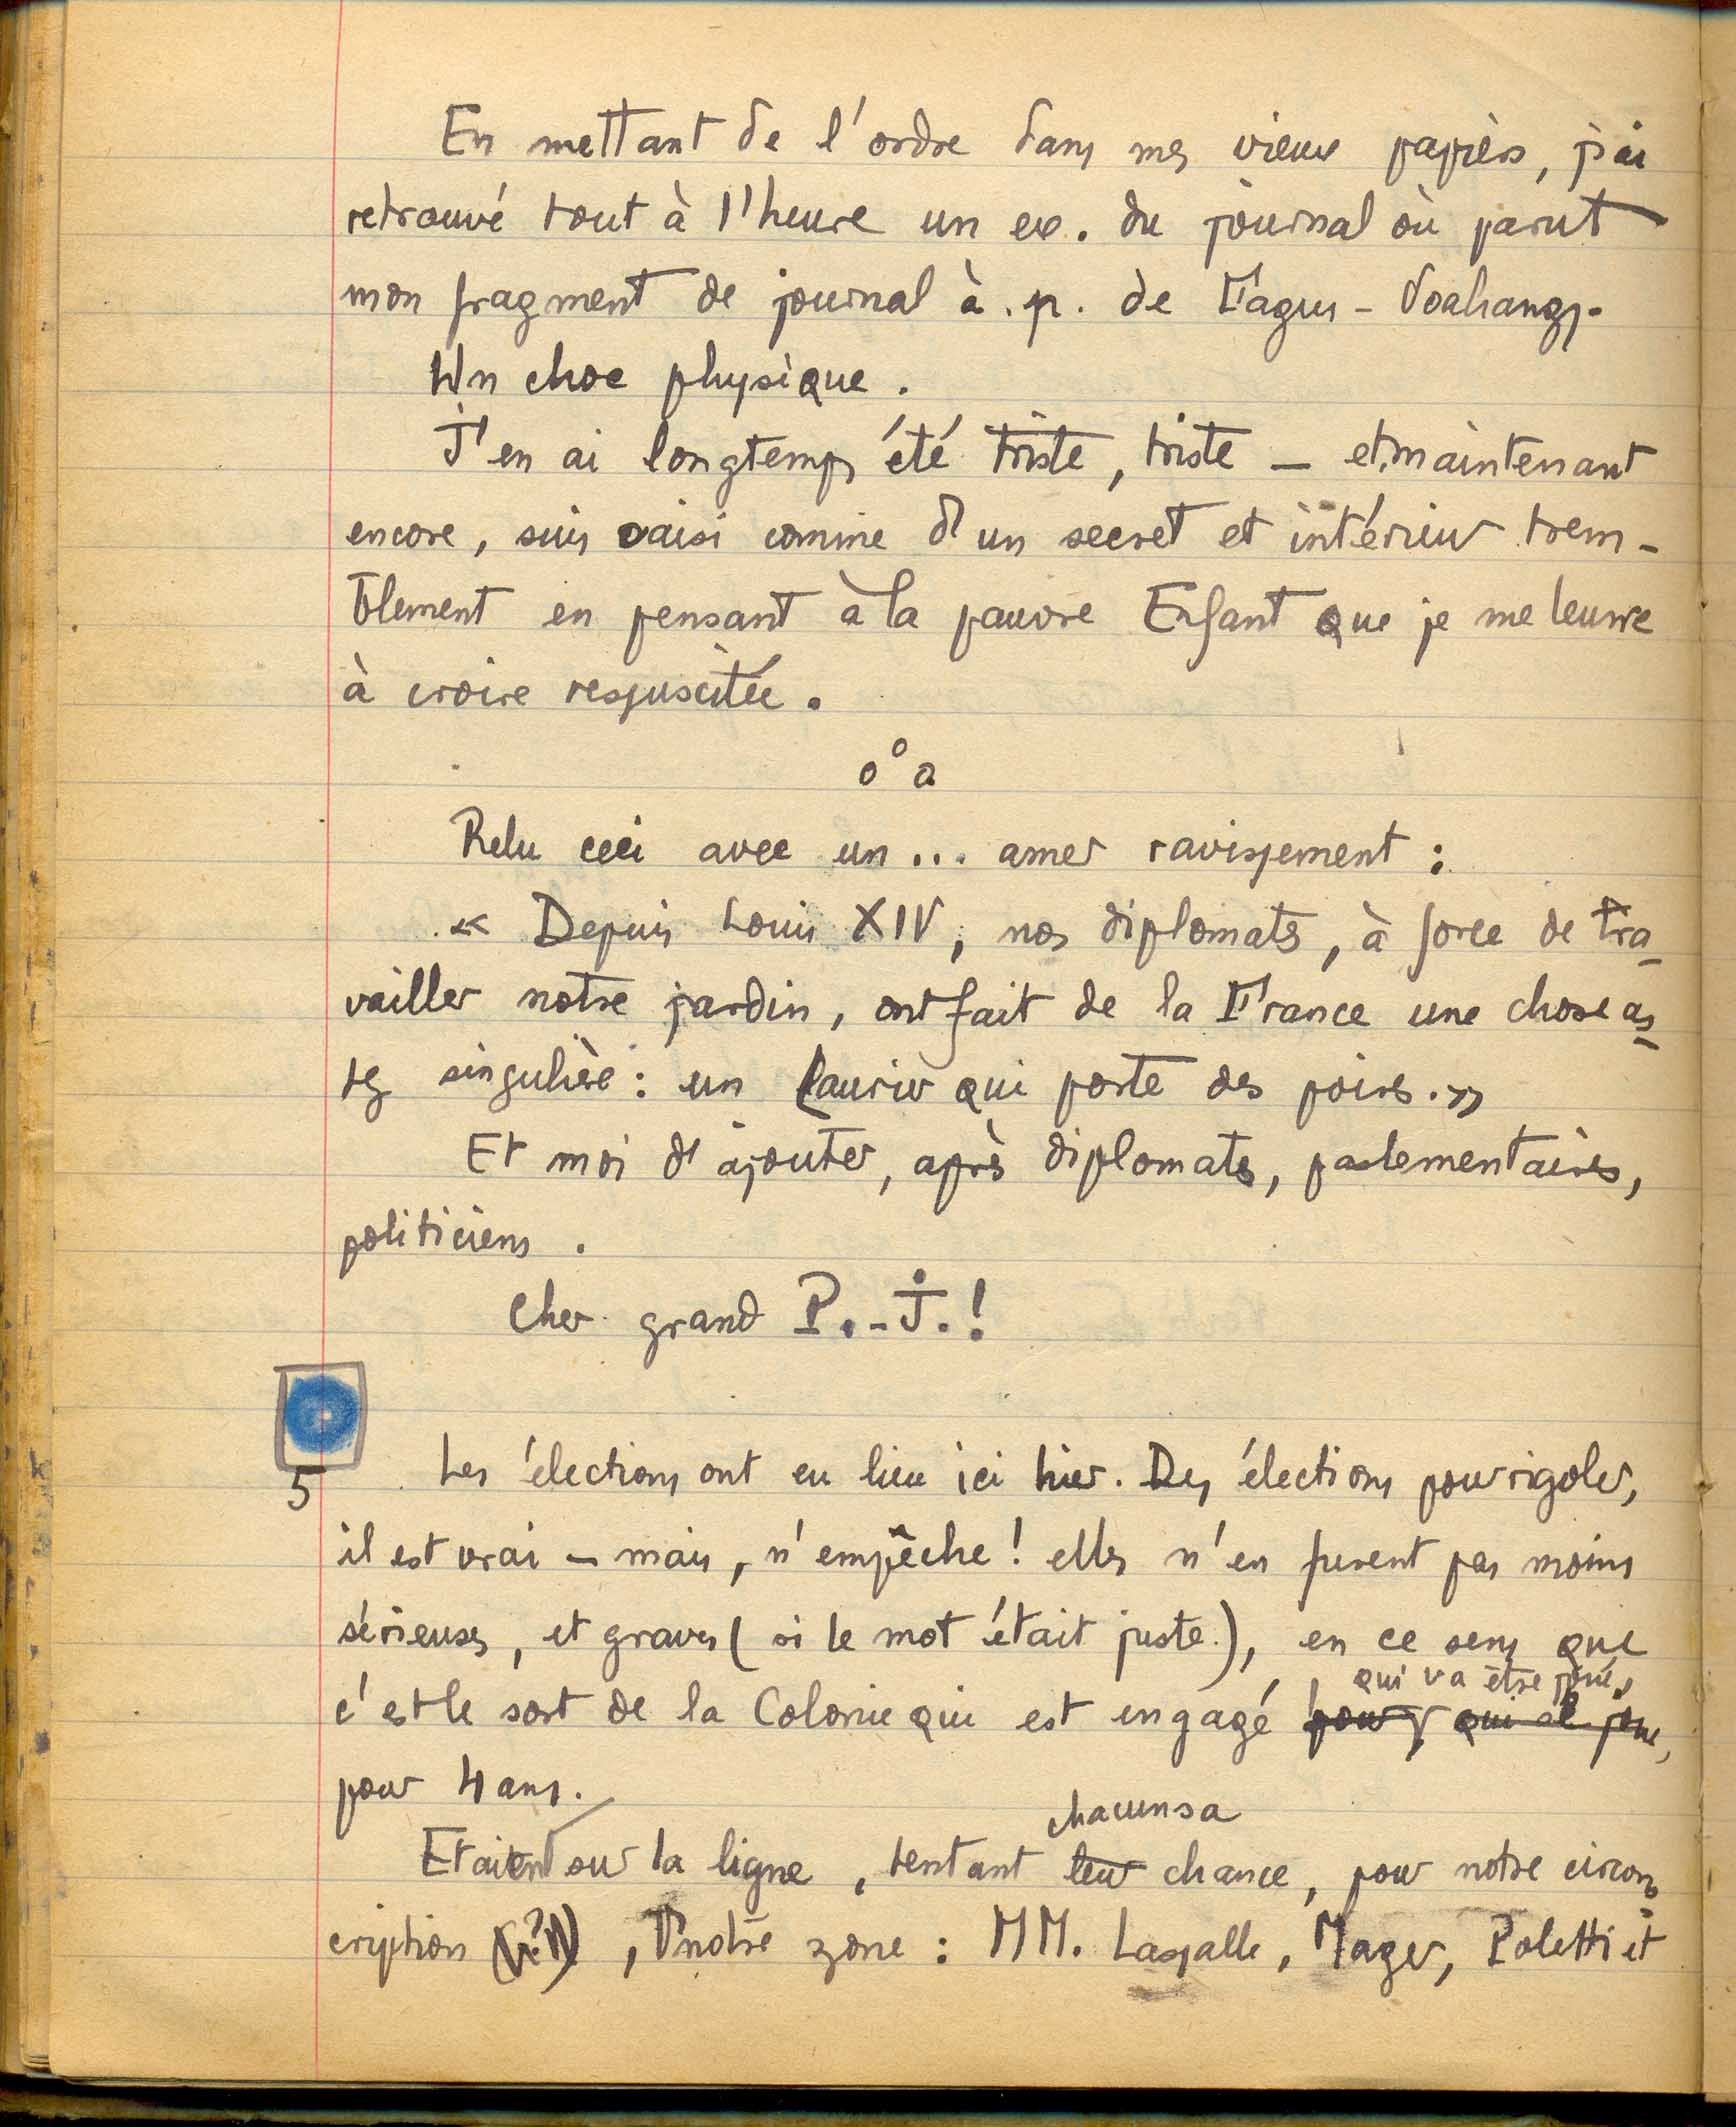 En mettant de l'ordre dans mes vieux papiers, j'ai
retrouvé tout à l'heure un ex. du journal où parut
mon fragment de journal à. p. de Fagus - Voahangy.
Un choc physique.
J'en ai longtemps été triste, triste — et, maintenant
encore, suis saisi comme d'un secret et intérieur trem-
blement en pensant à la pauvre Enfant que je me leurre
à croire ressuscitée.
o o o
Relu ceci avec un... amer ravissement :
« Depuis Louis XIV, nos diplomates, à force de tra-
vailler notre jardin, ont fait de la France une chose as-
sez singulière : un laurier qui porte des poires. »
Et moi d'ajouter, après diplomates, parlementaires,
politiciens.
Cher grand P.-J. !
5 Les élections ont eu lieu ici hier. Des élections pour rigoler,
il est vrai — mais, n'empêche ! elles n'en furent pas moins
sérieuses, et graves (si le mot était juste.), en ce sens que
qui va être joué,
c'est le sort de la Colonie qui est engagé pour, qui se joue,
pour 4 ans.
chacun sa
Etaient sur la ligne, tentant leur chance, pour notre circons-
cription, notre zone : MM. Lassalle, Mager, Poletti et